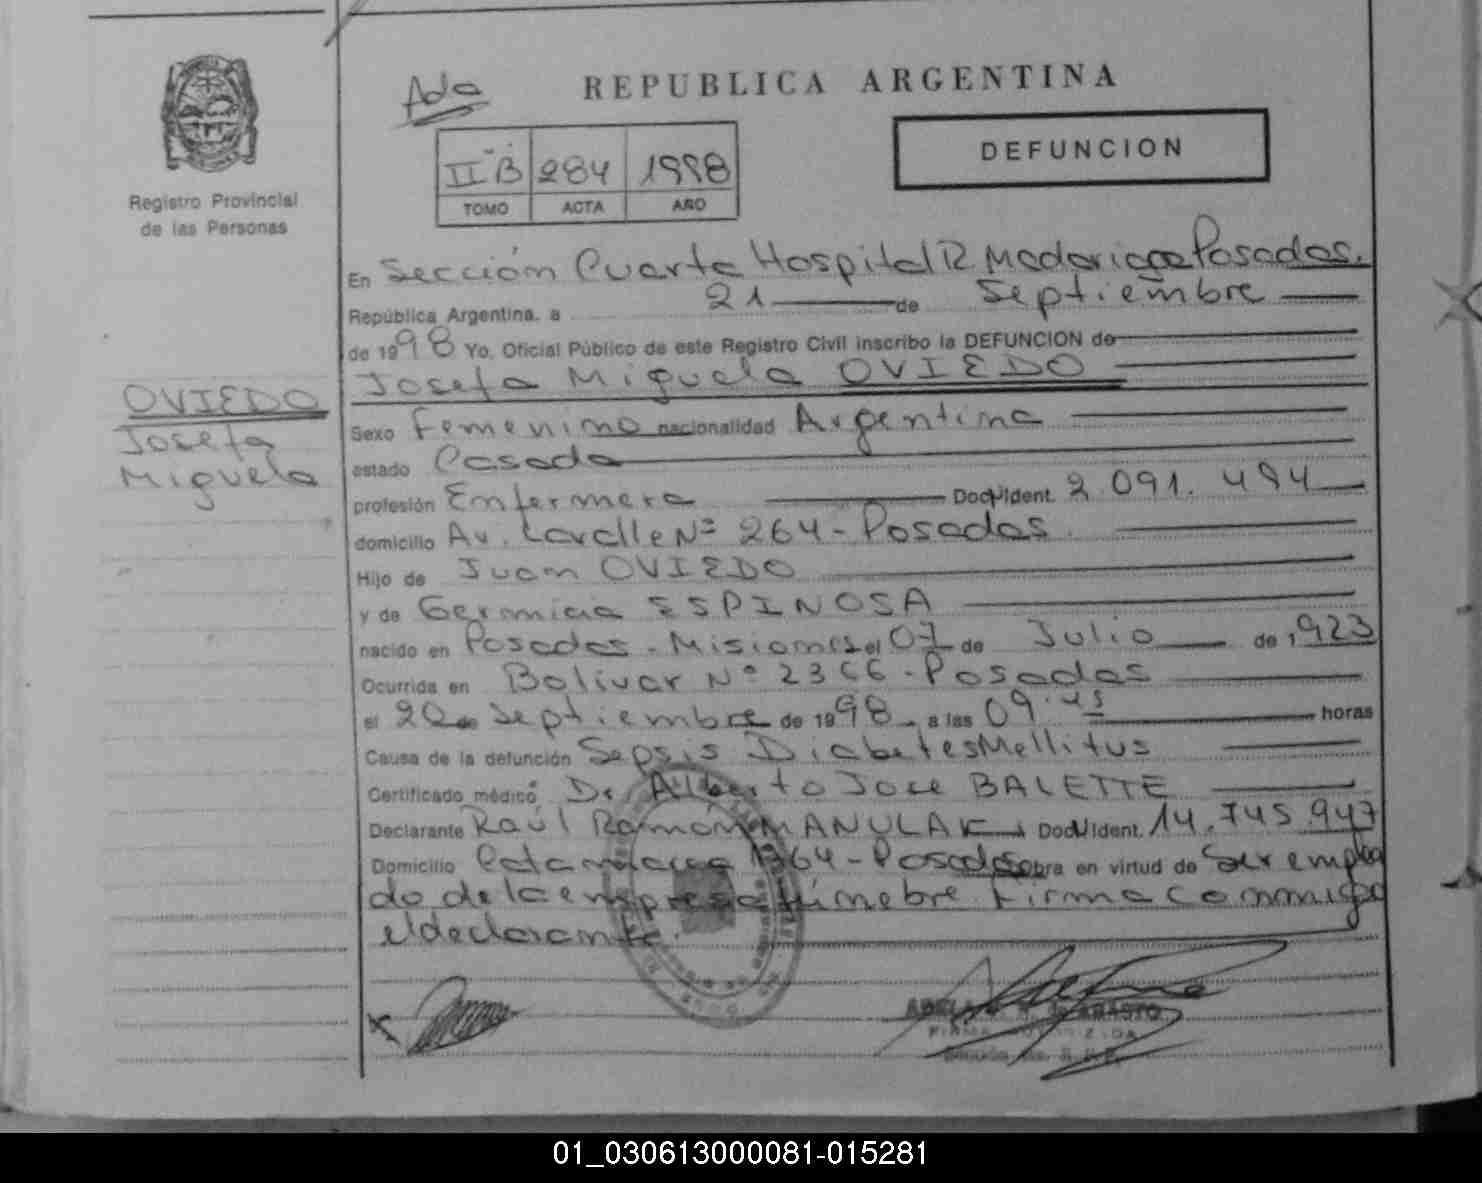 Ada
REPUBLICA ARGENTINA
II B 284 1998
TOMO ACTA AÑO
DEFUNCION
Registro Provincial
de las Personas
En Sección Cuarta Hospital R Madariaga Posadas.
República Argentina, a 21 de Septiembre
de 1998 Yo, Oficial Público de este Registro Civil inscribo la DEFUNCION de
Josefa Miguela OVIEDO
OVIEDO
Josefa
Miguela
Sexo Femenino nacionalidad Argentina
estado Casada
profesión Enfermera Doc. Ident. 2.091.494
domicilio Av. Lavalle Nº 264 - Posadas.
Hijo de Juan OVIEDO
y de ESPINOSA
nacido en Posadas - Misiones el 07 de Julio de 1923
Ocurrida en Bolivar Nº 2366 - Posadas
el 20 de Septiembre de 1998 a las 09:45 horas
Causa de la defunción Sepsis Diabetes Mellitus
Certificado médico Dr Alberto Jose BALETTE
Declarante Raúl Ramón MANULAK Doc. Ident. 14.745.947
Domicilio Catamarca 1364 - Posadas obra en virtud de ser emplea
do de la empresa fúnebre. Firma conmigo
el declarante.
FIRMA AUTORIZADA
01_030613000081-015281